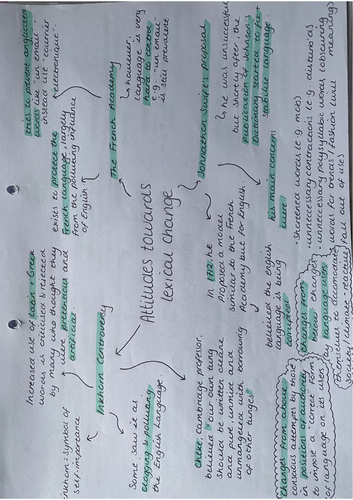 Attitudes towards
lexical change
The French Academy
exists to protect the
French language, largely
from the polluting influence
of English
tries to prevent anglicisms
words like "un email"
instead use "courier
electronique"
however,
language is very
hard to control
e.g. "un email"
is still prevalent
Johnathan Swift's proposal
In 1712 he
proposed a model
similar to the French
Academy but for English
believed the english
language is being
corrupted
he was unsuccessful
but shortly after, the
publication of Johnson's
Dictionary started to fix +
stabilise language
his main concerns
were
- Shortened words (e.g. mob)
- unnecessary contractions (e.g. disturb'd)
- unnecessary polysyllabic words (obscuring meaning)
- words for trends / fashion (will
fall out of use)
Inkhorn controversy
Increased use of Latin + Greek
words is criticised + rejected
by many who thought they
were pretentious and
artificial
inkhorn = symbol of
self-importance
Some saw it as
clogging + polluting
the English Language.
Cheke, cambridge professor,
believed "our own tung
should be written cleane
and pure, unmixt and
unmangeled with borrowing
of other tunges"
Changes from above
conscious attempts by those
in positions of authority
to impose a 'correct' form
of language on its users
Changes from
below changes
by language users
themselves to accommodate
society (climate neutral)